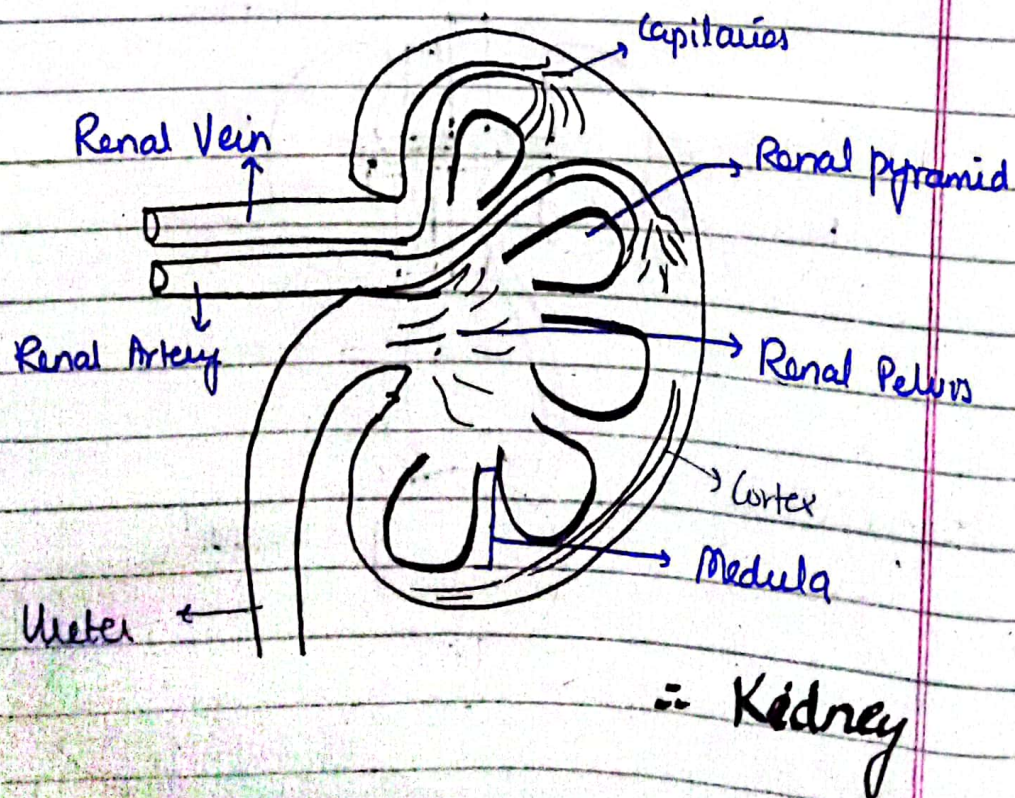 Capilaries
Renal Vein
Renal pyramid
Renal Artery
Renal Pelvis
Cortex
Medula
Ureter
:- Kidney